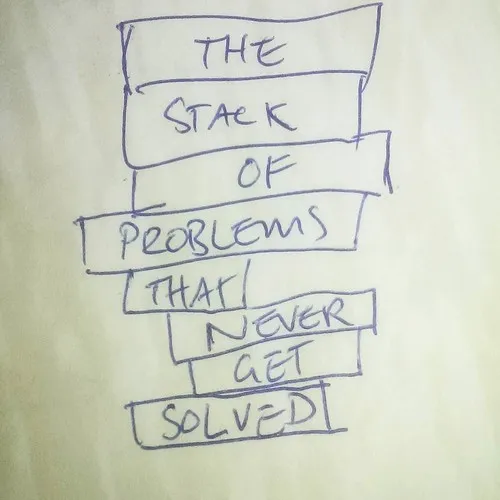 THE
STACK
OF
PROBLEMS
THAT
NEVER
GET
SOLVED